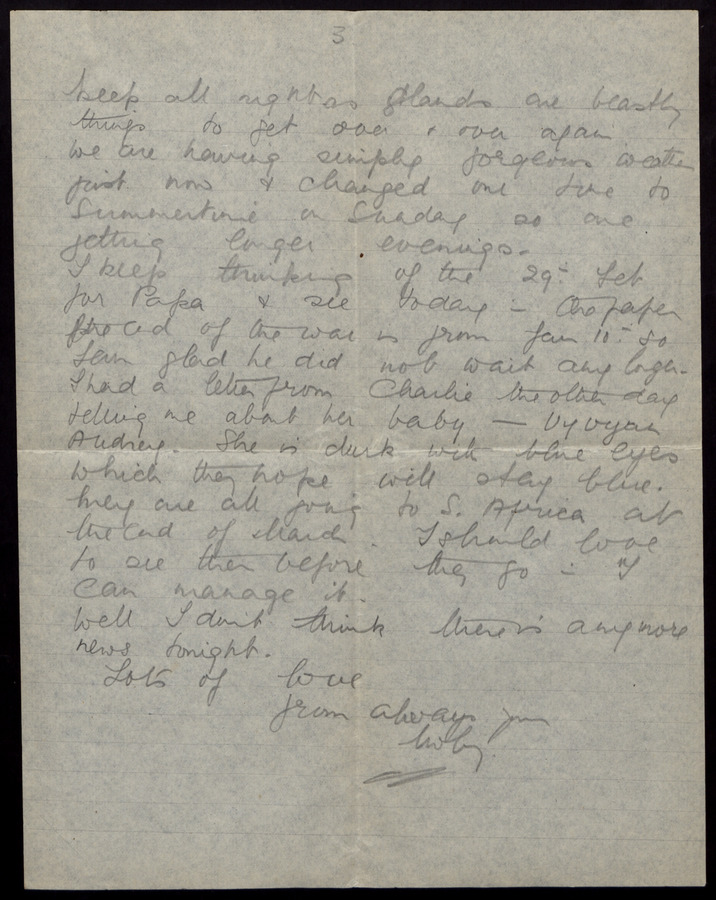 3
keep all right as glands are beastly
things to get over & over again
We are having simply gorgeous weather
just now & changed our time to
Summertime on Sunday so are
getting longer evenings.
I keep thinking of the 29th Feb
for Papa & see today - the paper
the end of the war is from Jan 10th so
I am glad he did not wait any longer.
I had a letter from Charlie the other day
telling me about her baby — Vyvyan
Audrey. She is dark with blue eyes
which they hope will stay blue.
They are all going to S. Africa at
the end of March. I should love
to see them before they go - if I
can manage it.
Well I don't think there is any more
news tonight.
Lots of love
from always your